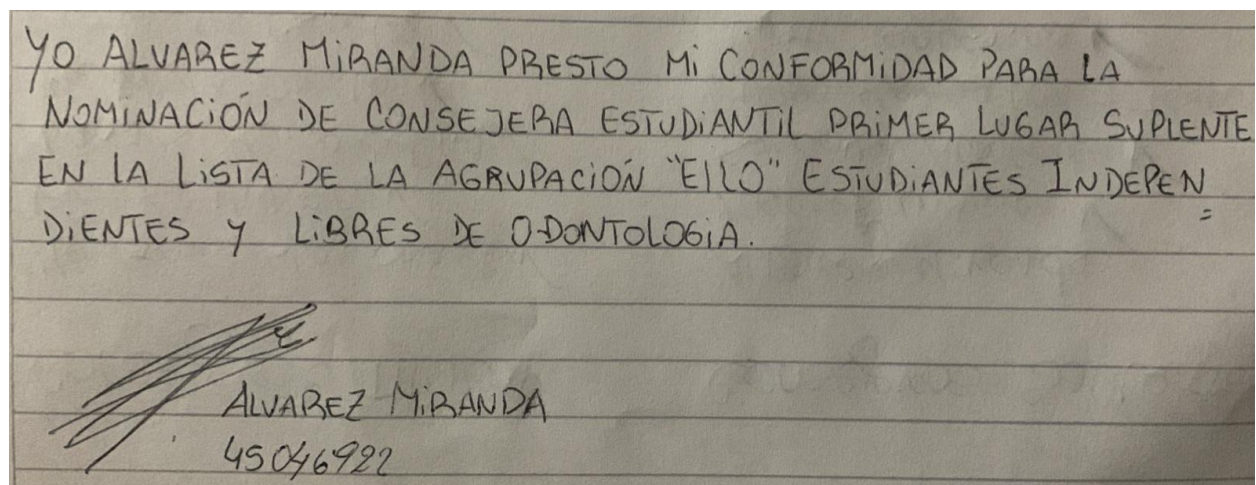 YO ALVAREZ MIRANDA PRESTO MI CONFORMIDAD PARA LA
NOMINACIÓN DE CONSEJERA ESTUDIANTIL PRIMER LUGAR SUPLENTE
EN LA LISTA DE LA AGRUPACIÓN "EILO" ESTUDIANTES INDEPEN=
DIENTES Y LIBRES DE ODONTOLOGIA.
ALVAREZ MIRANDA
45046922